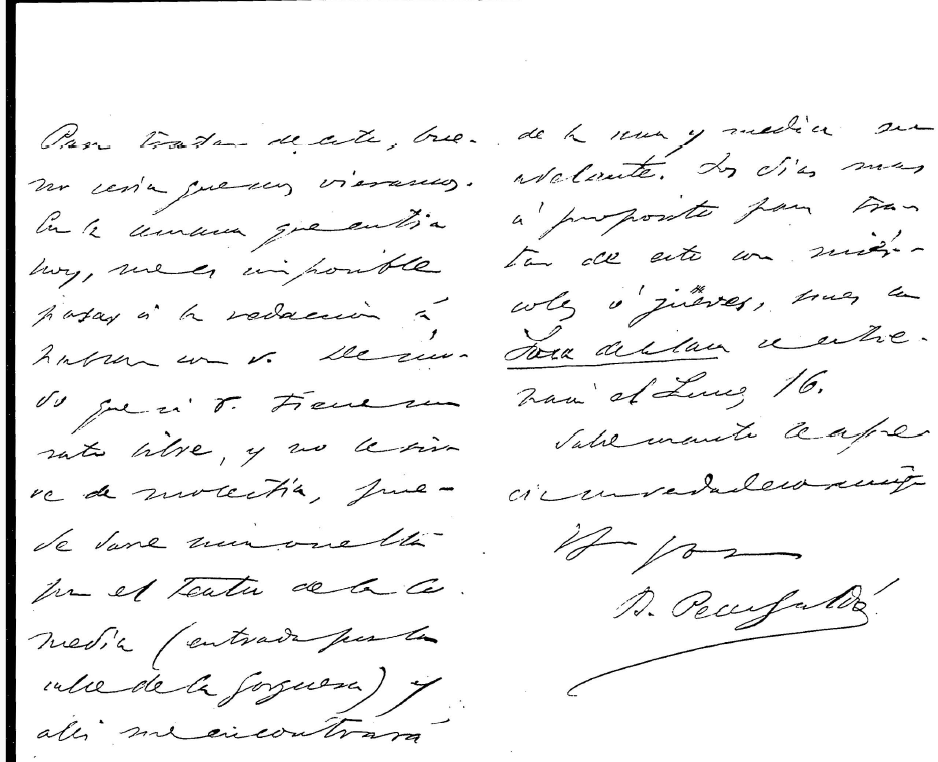 Para tratar de esto, bue-
no sería que nos vieramos.
En la semana que entra
hoy, me es imposible
pasar á la redacción á
hablar con V. De mo-
do que si V. tiene un
rato libre, y no le sir-
ve de molestia, pue-
de darse una vuelta
por el Teatro de la Co-
media (entrada por la
calle de la Gorguera) y
alli me encontrará
de la una y media en
adelante. Los dias mas
á proposito para tra-
tar de esto son miér-
coles ó jueves, pues la
Loca de la Casa se estre-
nará el Lunes 16.
Sabe cuanto le apre
cia su verdadero amigo
B. Perez Galdós